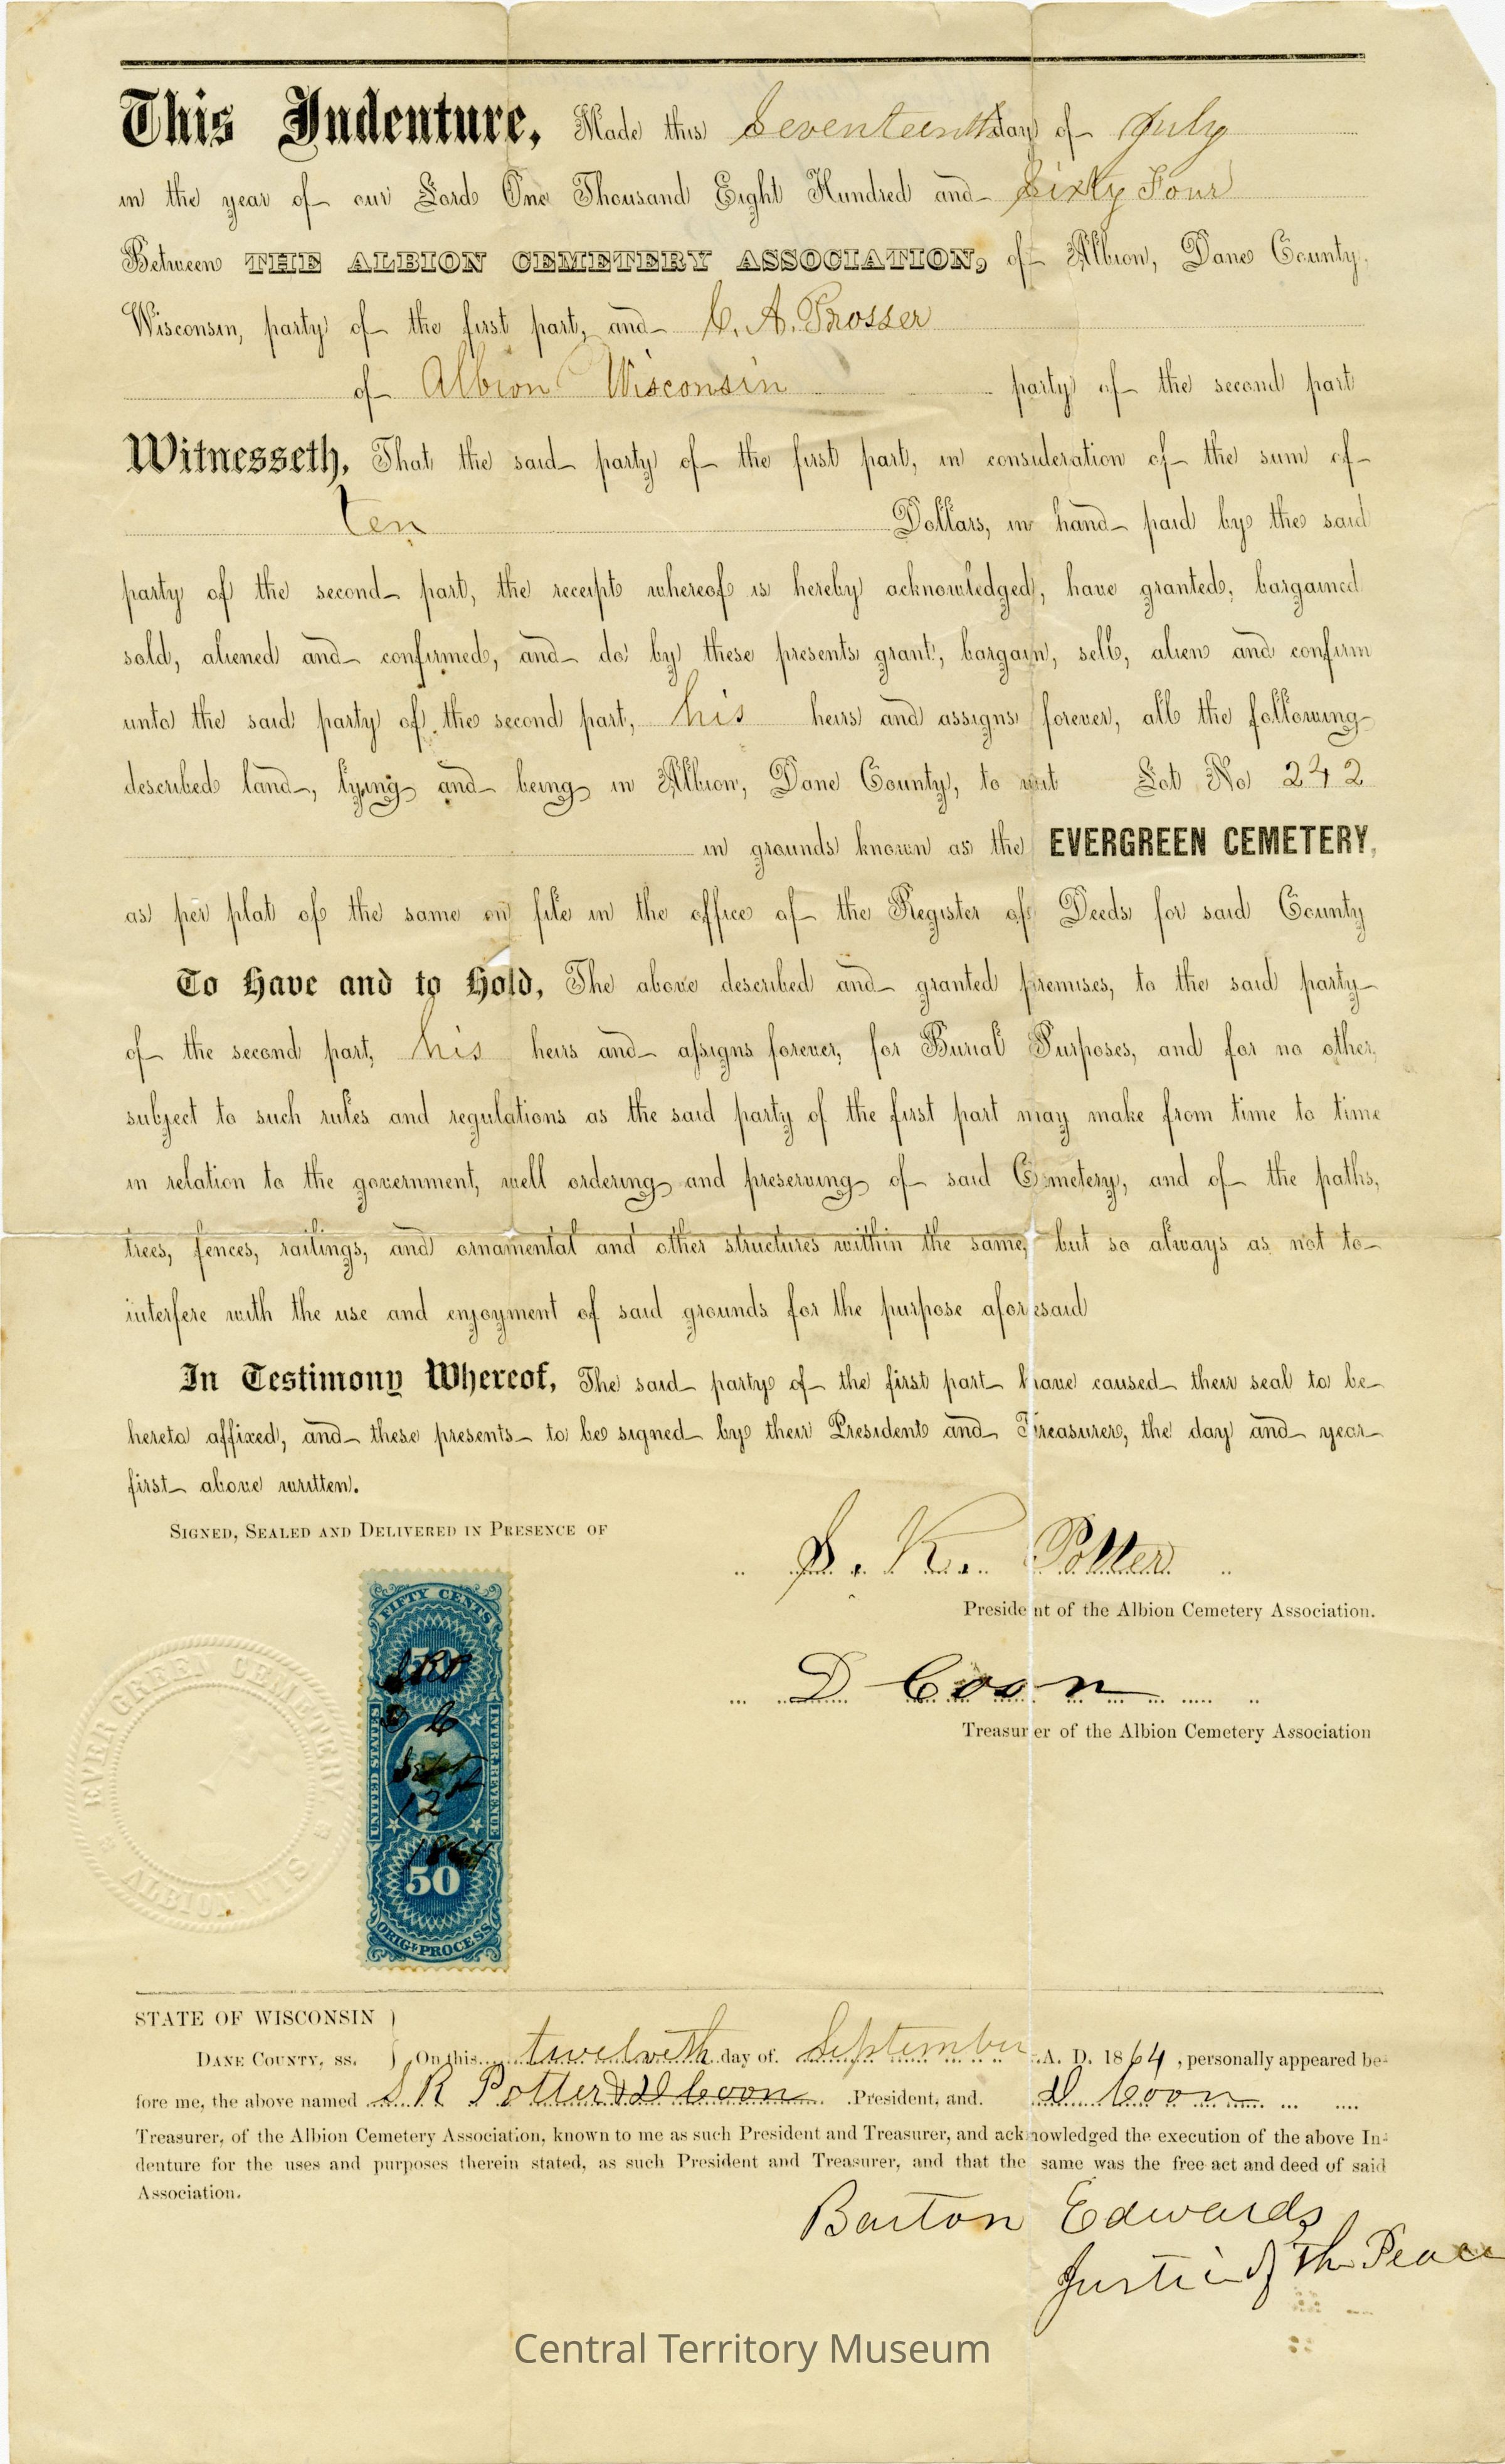 This Indenture, Made this Seventeenth day of July
in the year of our Lord One Thousand Eight Hundred and Sixty Four
Between THE ALBION CEMETERY ASSOCIATION, of Albion, Dane County,
Wisconsin, party of the first part, and C. A. Prosser
of Albion Wisconsin party of the second part
Witnesseth, That the said party of the first part, in consideration of the sum of
ten Dollars, in hand paid by the said
party of the second part, the receipt whereof is hereby acknowledged, have granted, bargained
sold, aliened and confirmed, and do by these presents grant, bargain, sell, alien and confirm
unto the said party of the second part, his heirs and assigns forever, all the following
described land, lying and being in Albion, Dane County, to wit Lot No 242
in grounds known as the EVERGREEN CEMETERY,
as per plat of the same on file in the office of the Register of Deeds for said County
To Have and to Hold, The above described and granted premises, to the said party
of the second part, his heirs and assigns forever, for Burial Purposes, and for no other,
subject to such rules and regulations as the said party of the first part may make from time to time
in relation to the government, well ordering and preserving of said Cemetery, and of the paths,
trees, fences, railings, and ornamental and other structures within the same, but so always as not to
interfere with the use and enjoyment of said grounds for the purpose aforesaid
In Testimony Whereof, The said party of the first part have caused their seal to be
hereto affixed, and these presents to be signed by their President and Treasurer, the day and year
first above written.
SIGNED, SEALED AND DELIVERED IN PRESENCE OF
S. R. Potter
President of the Albion Cemetery Association.
D Coon
Treasurer of the Albion Cemetery Association
EVER GREEN CEMETERY
ALBION WIS
FIFTY CENTS
50
SRP
D C
UNITED STATES
INTER. REVENUE
Sept
12
1864
50
ORIGL PROCESS
STATE OF WISCONSIN }
DANE COUNTY, ss. } On this twelveth day of September A. D. 1864, personally appeared be-
fore me, the above named S R Potter & D Coon President, and D Coon
Treasurer, of the Albion Cemetery Association, known to me as such President and Treasurer, and acknowledged the execution of the above In-
denture for the uses and purposes therein stated, as such President and Treasurer, and that the same was the free act and deed of said
Association.
Barton Edwards
Justice of The Peace
Central Territory Museum